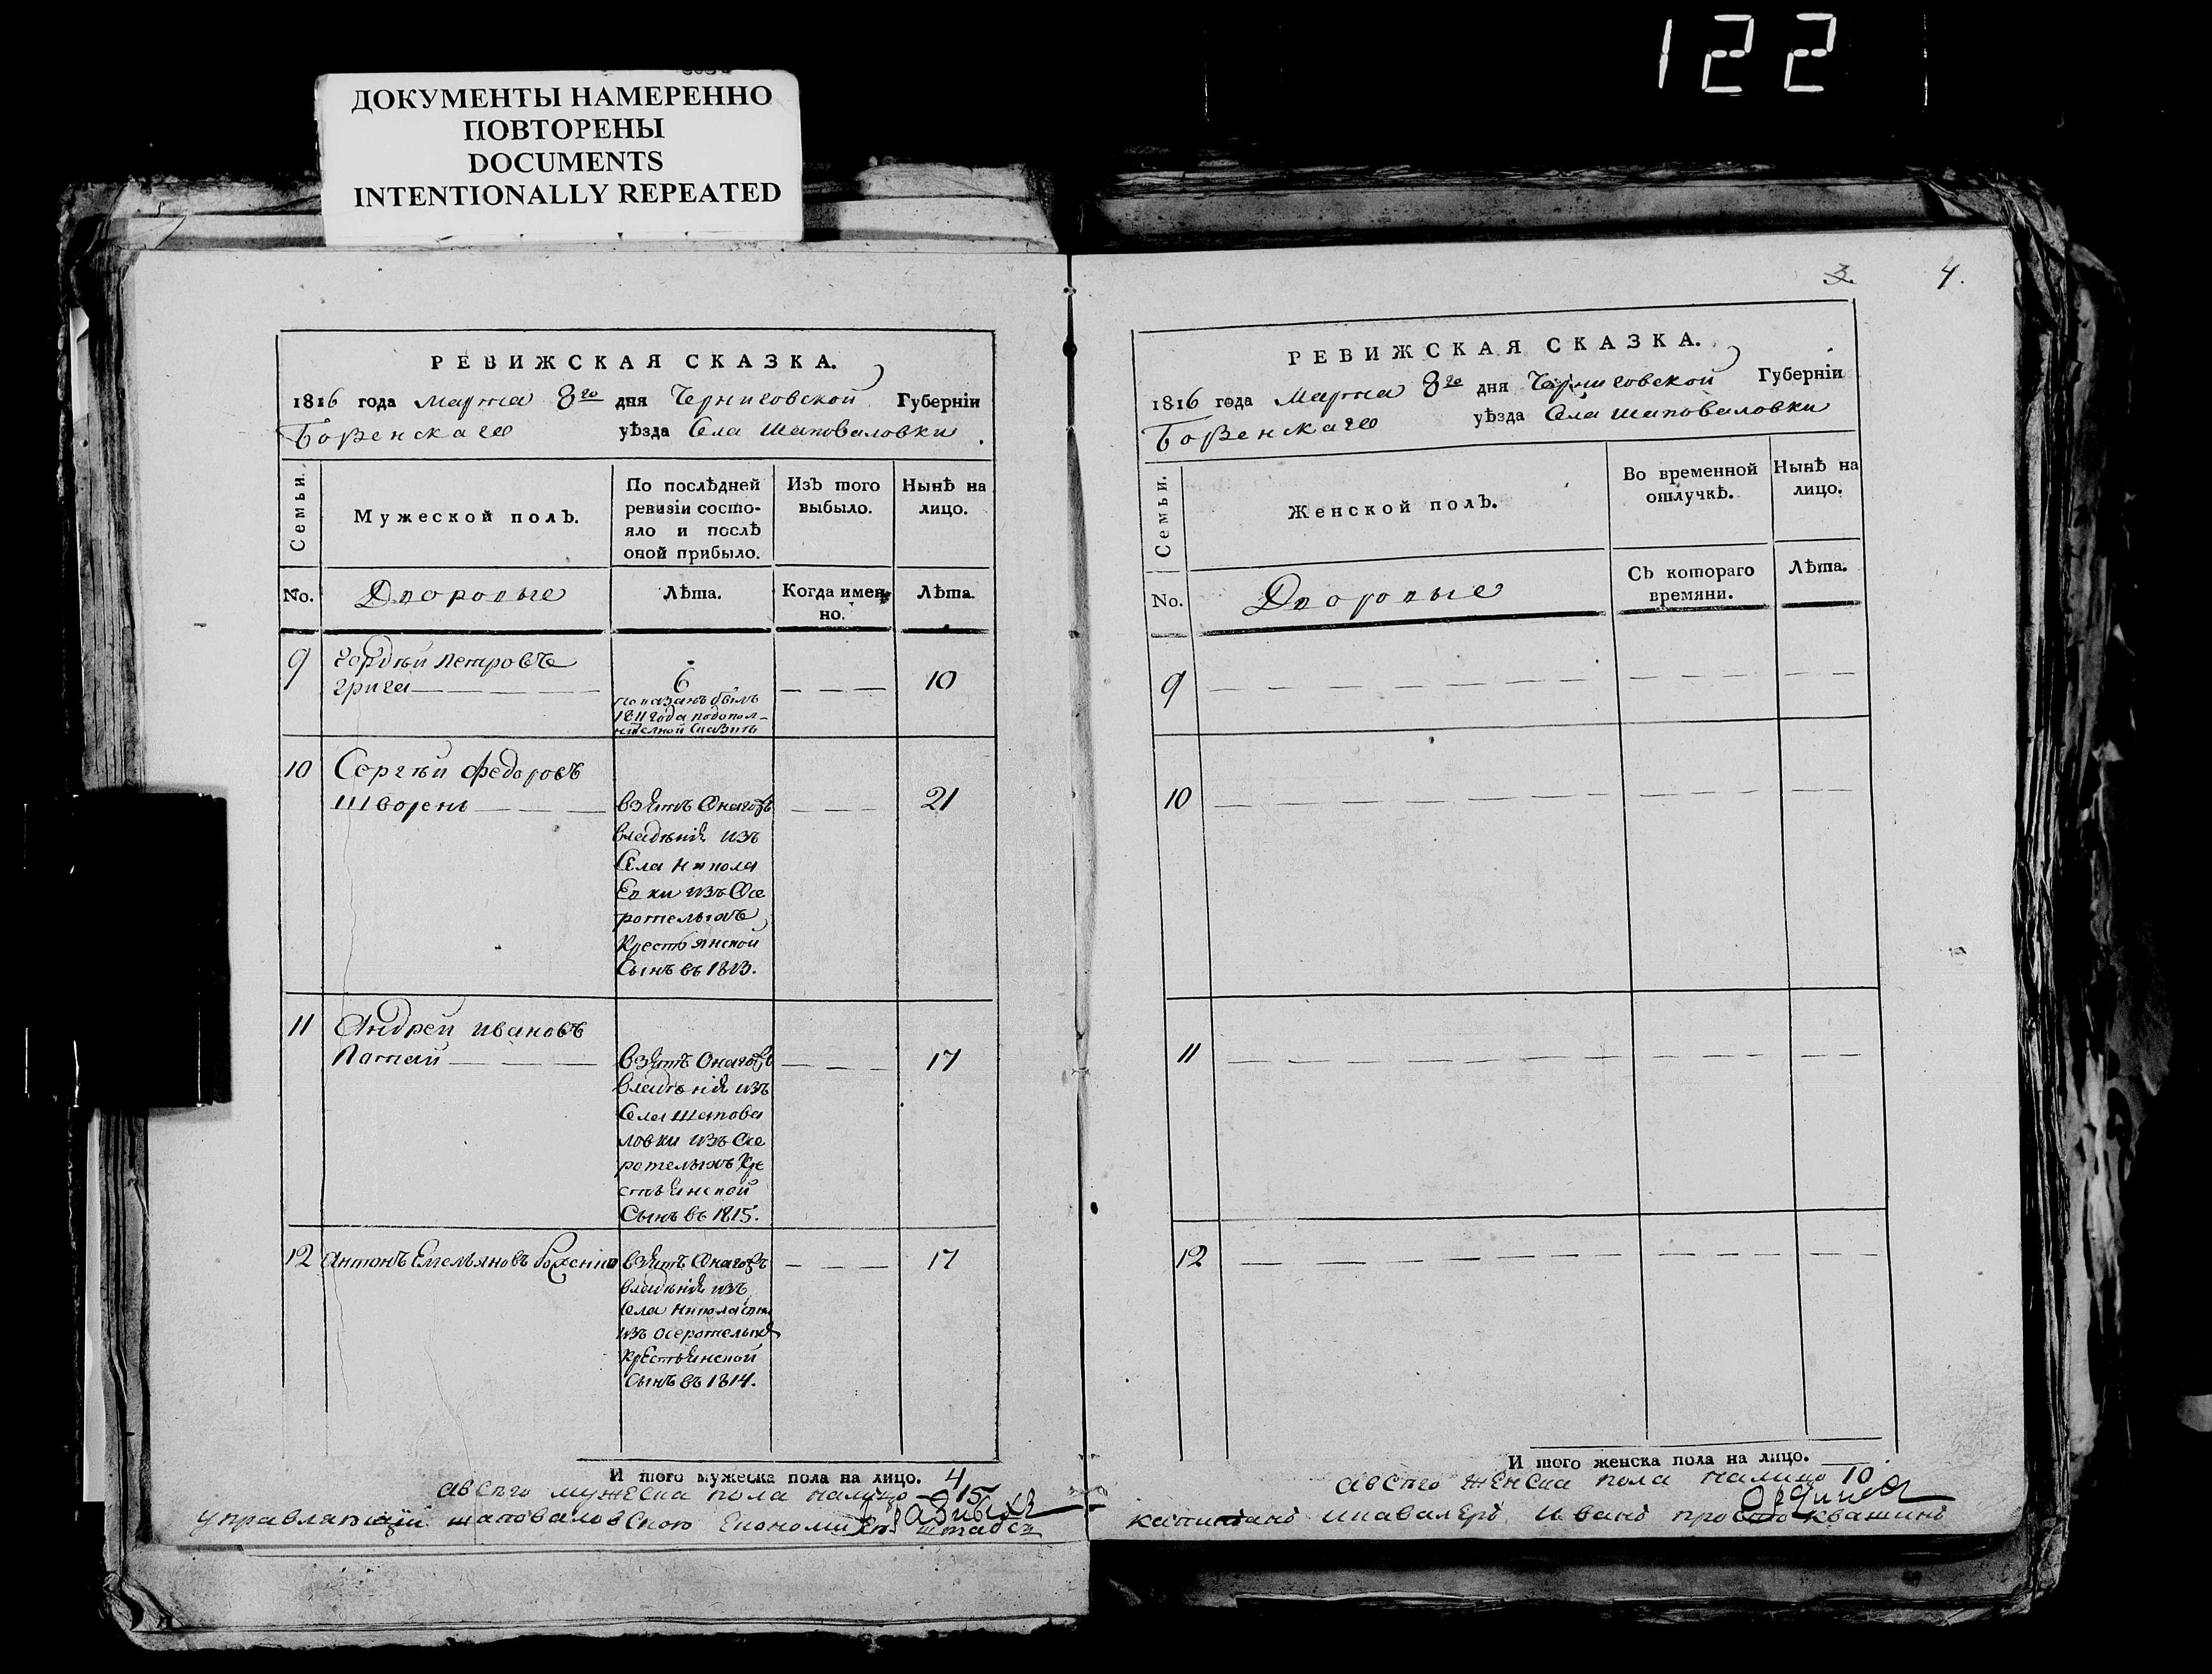 122
ДОКУМЕНТЫ НАМЕРЕННО
ПОВТОРЕНЫ
DOCUMENTS
INTENTIONALLY REPEATED
РЕВИЖСКАЯ СКАЗКА.
1816 года Марта 8го дня Черниговской Губерніи
Борзенскаго уѣзда Села Шаповаловки
Семьи.
Мужеской полЪ.
По послѣдней
ревизіи состо-
яло и послѣ
оной прибыло.
ИзЪ того
выбыло.
Нынѣ на
лицо.
No. Дворовые Лѣта. Когда имен-
но. Лѣта.
9 Гордѣй Петровъ
грига 6 10
показанъ былъ
1811 года по допол-
10 Сергѣй Федоровъ
Шворень взятъ 21
владѣнія изъ
Села Никола
евки изъ Осе
ротелыхъ
Крестьянской
Сынъ въ 1813.
11 Андрей Ивановъ
взятъ 17
владѣнія изъ
Села Шапова
ловки изъ Осе
ротелыхъ Кре
стьянской
Сынъ въ 1815.
12 Антонъ Емельяновъ взятъ 17
владѣнія изъ
Села
изъ осеротелыхъ
крестьянской
Сынъ въ 1814.
И того мужеска пола на лицо. 4
а всего мужеска пола налицо 15
управляющій шаповаловскою Економіею штабсъ
3. 4.
РЕВИЖСКАЯ СКАЗКА.
1816 года Марта 8го дня Черниговской Губерніи
Борзенскаго уѣзда Села Шаповаловки
Семьи.
Женской полЪ.
Во временной
отлучкѣ.
Нынѣ на
лицо.
No. Дворовые СЪ котораго
времяни. Лѣта.
9
10
11
12
И того женска пола на лицо.
а всего женска пола налицо 10
капитанъ икавалеръ Иванъ просто квашинъ